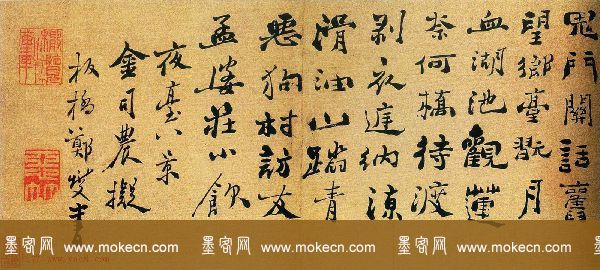 鬼門關話舊
望鄉臺翫月
血湖池觀蓮
奈何橋待渡
剥衣庭納涼
滑油山踏青
惡狗村訪友
孟婆莊小飲
夜臺八景
金司農擬
板橋鄭燮書
墨客网 www.mokecn.com 墨客网 www.mokecn.com 墨客网